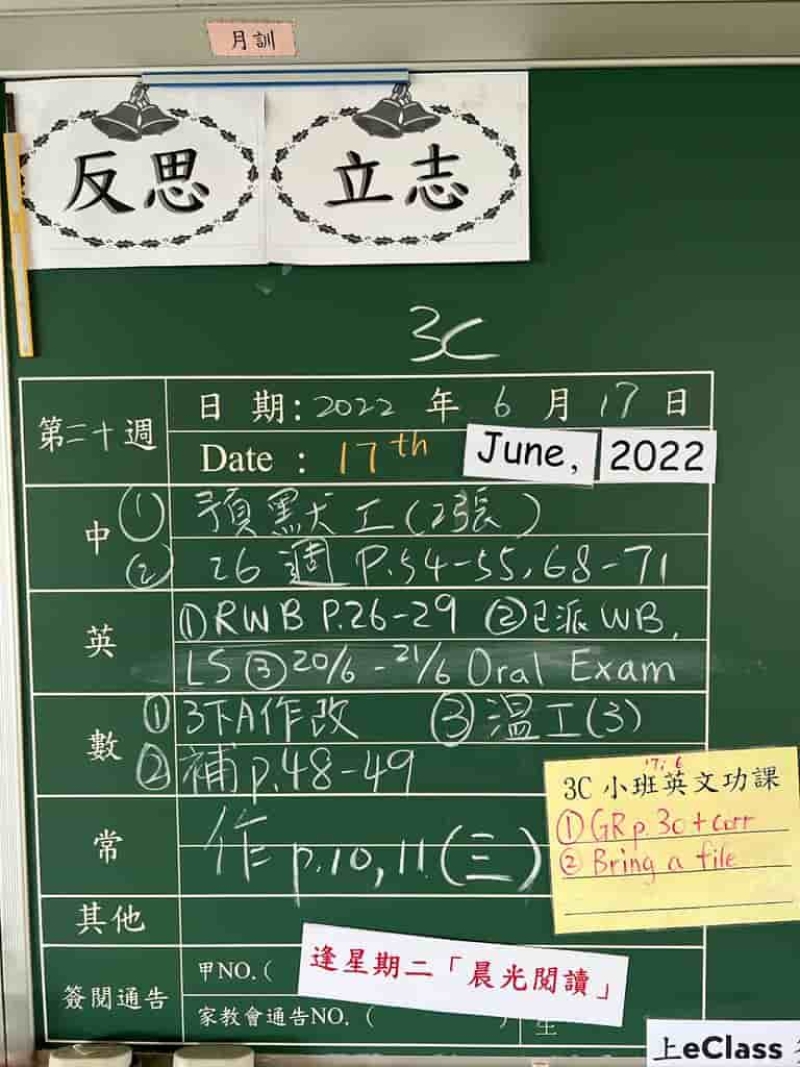 月訓
反思 立志
3C
第二十週
日 期: 2022 年 6 月 17 日
Date : 17th June, 2022
中
① 預默工(2張)
② 26 週 P.54-55, 68-71
英
①RWB P.26-29 ②已派 WB,
LS ③20/6 - 21/6 Oral Exam
數
① 3下A作改 ③溫工(3)
② 補p.48-49
常
作 p.10, 11 (三)
17.6
3C 小班英文功課
① GR p.30 + corr
② Bring a file
其他
簽閱通告
甲NO. (
家教會通告NO. ( )
逢星期二「晨光閱讀」
上eClass